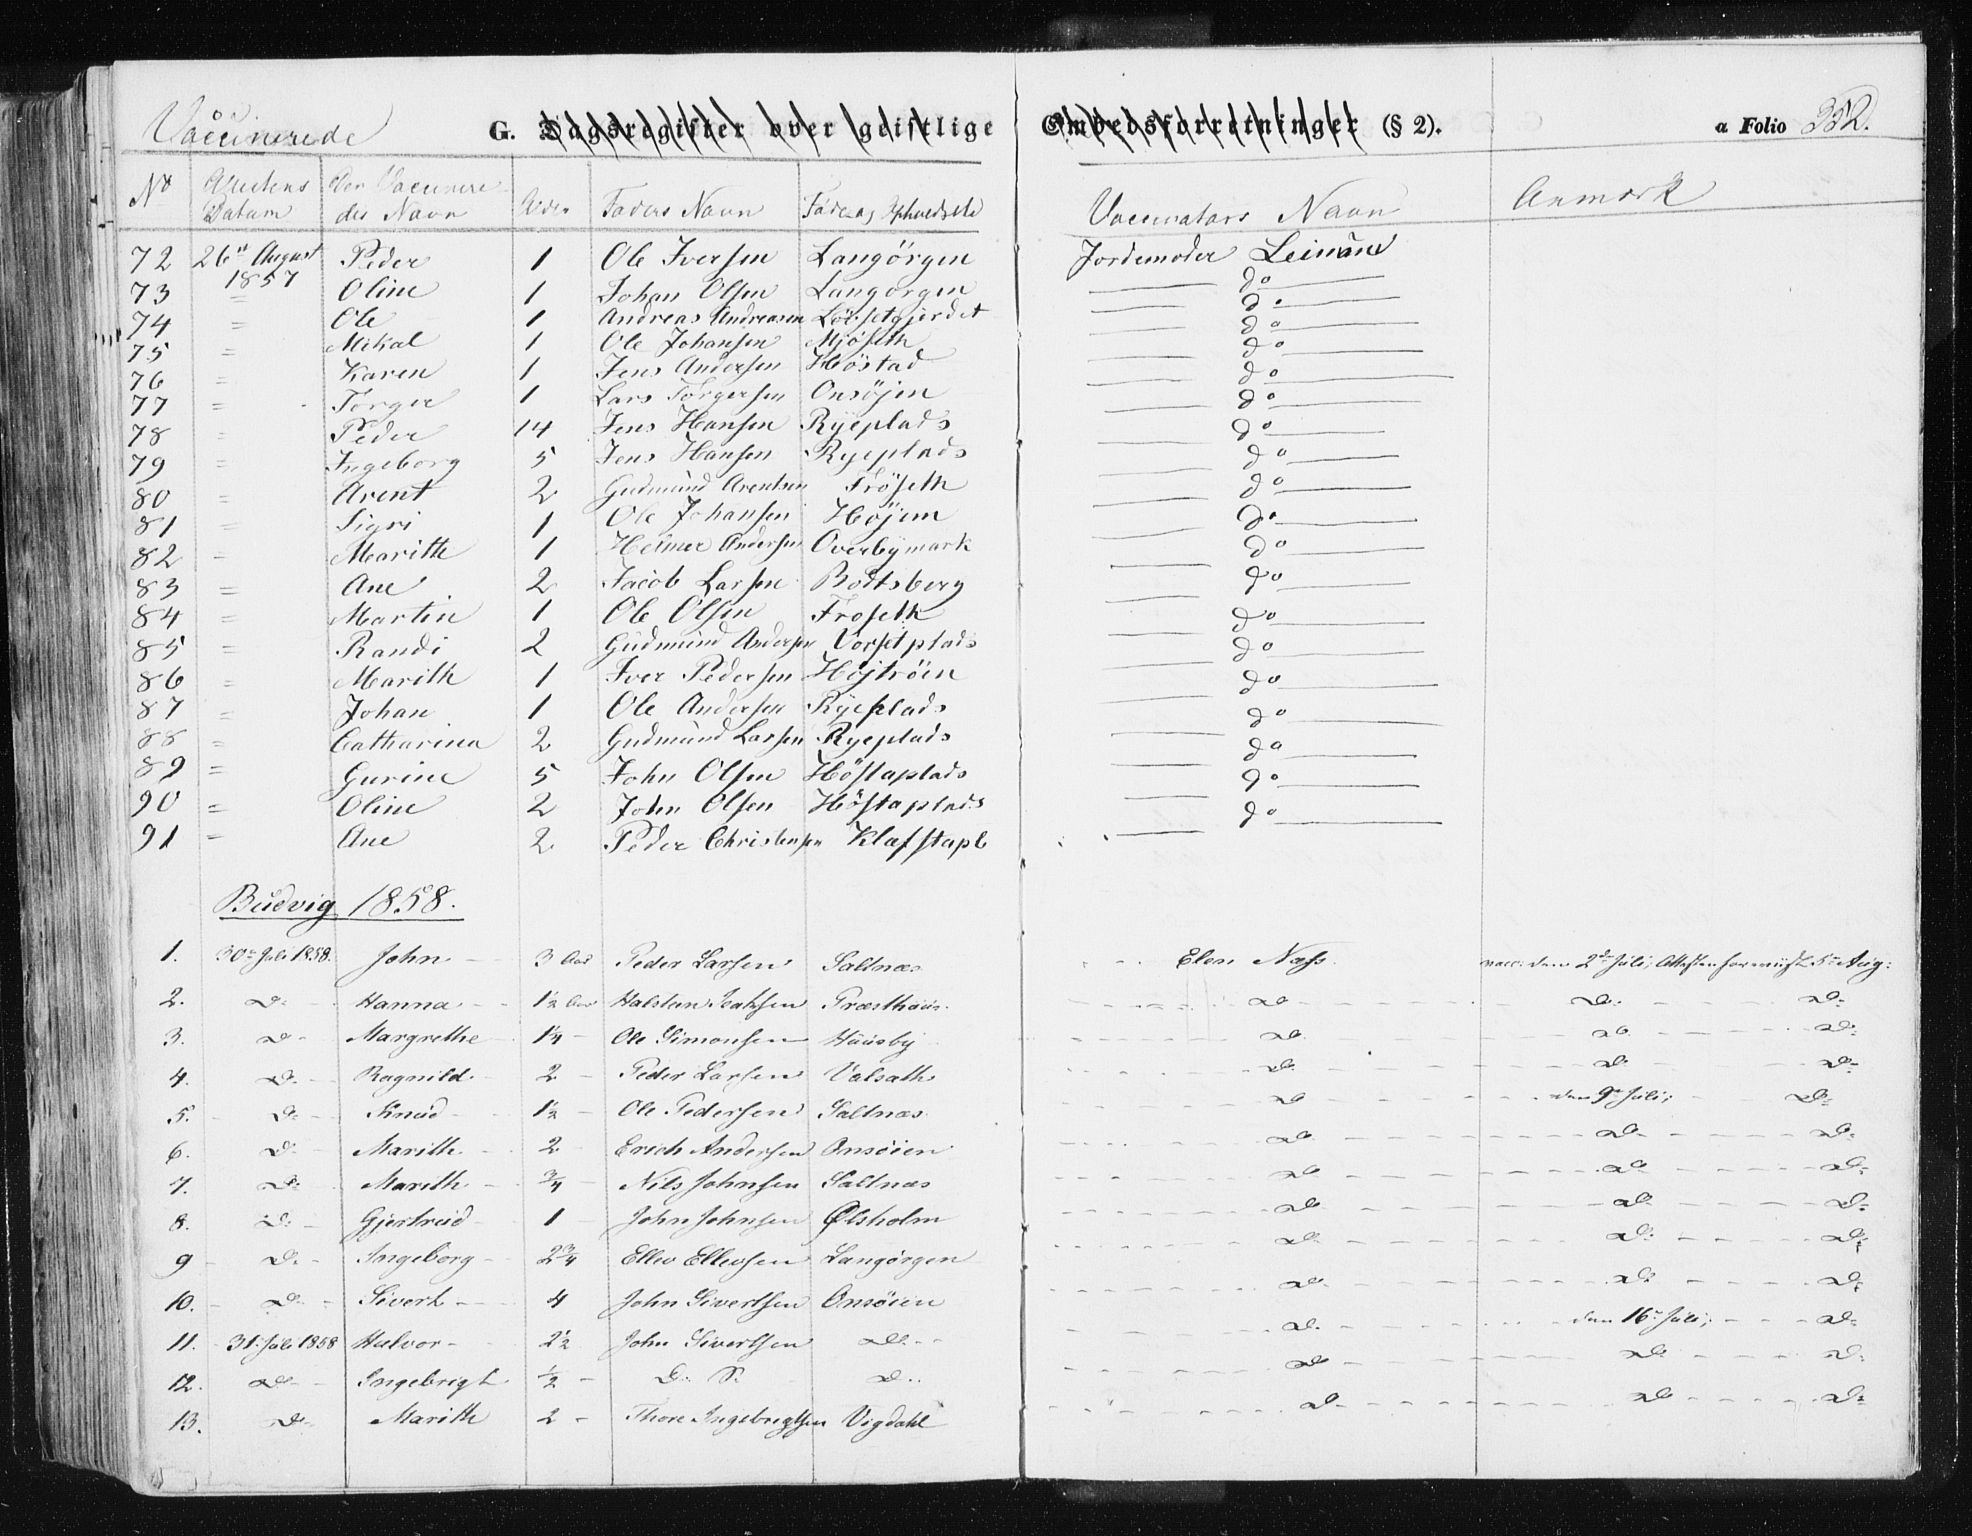 Vaccinerede G. Dagsregister over geistlige Embedsforretninger (§ 2). a Folio 352.
No Attestens Datum Den Vaccineredes Navn Alder Faders Navn Faders Opholdssted Vaccinators Navn Anmærk
72 26de August 1857 Peder 1 Ole Iversen Langörgen Jordemoder Leinan
73 " Oline 1 Johan Olsen Langörgen do
74 " Ole 1 Andreas Andreasen Lövsetgjerdet do
75 " Mikal 1 Ole Johansen Mjöseth do
76 " Karen 1 Jens Andersen Höstad do
77 " Torger 1 Lars Torgersen Onsöjen do
78 " Peder 14 Jens Hansen Ryeplads do
79 " Ingeborg 5 Jens Hansen Ryeplads do
80 " Arent 2 Gudmund Arentsen Fröseth do
81 " Sigri 1 Ole Johansen Höjem do
82 " Marith 1 Helmer Andersen Overbymark do
83 " Ane 2 Jacob Larsen Bottsberg do
84 " Martin 1 Ole Olsen Froseth do
85 " Randi 2 Gudmund Andersen Vorsetplads do
86 " Marith 1 Iver Pedersen Höjtröen do
87 " Johan 1 Ole Andersen Ryeplads do
88 " Catharina 2 Gudmund Larsen Ryeplads do
89 " Gurine 5 John Olsen Höstaplads do
90 " Oline 2 John Olsen Höstaplads do
91 " Ane 2 Peder Christensen Klefstapl do
Budvig 1858.
1. 30te Juli 1858. John 3 Aar Peder Larsen Saltnæs Elen Næss. vacc: den 2de Juli; Attesten forevist 5te Aug:
2. Do Hanna 1½ Aar Halstan Præsthuus Do Do Do
3. Do Margrethe 1¼ Ole Simonsen Huusby Do Do Do
4. Do Ragnild 2 Peder Larsen Valsath Do Do Do
5. Do Knud 1½ Ole Pedersen Saltnæs Do den 9de Juli; Do
6. Do Marith 2 Erich Andersen Onsøien Do Do Do
7. Do Marith ¾ Nils Johnsen Saltnæs Do Do Do
8. Do Gjertrud 1 John Johnsen Ølsholm Do Do Do
9 Do Ingeborg 2¾ Ellev Ellevsen Langørgen Do Do Do
10. Do Sivert 4 John Sivertsen Onsøien Do Do Do
11. 31. Juli 1858 Halvor 2½ John Sivertsen Do Do den 16de Juli; Do
12. Do Ingebrigt ½ D. S. Do Do Do Do
13. Do Marith 2 Thore Ingebrigtsen Vigdahl Do Do Do